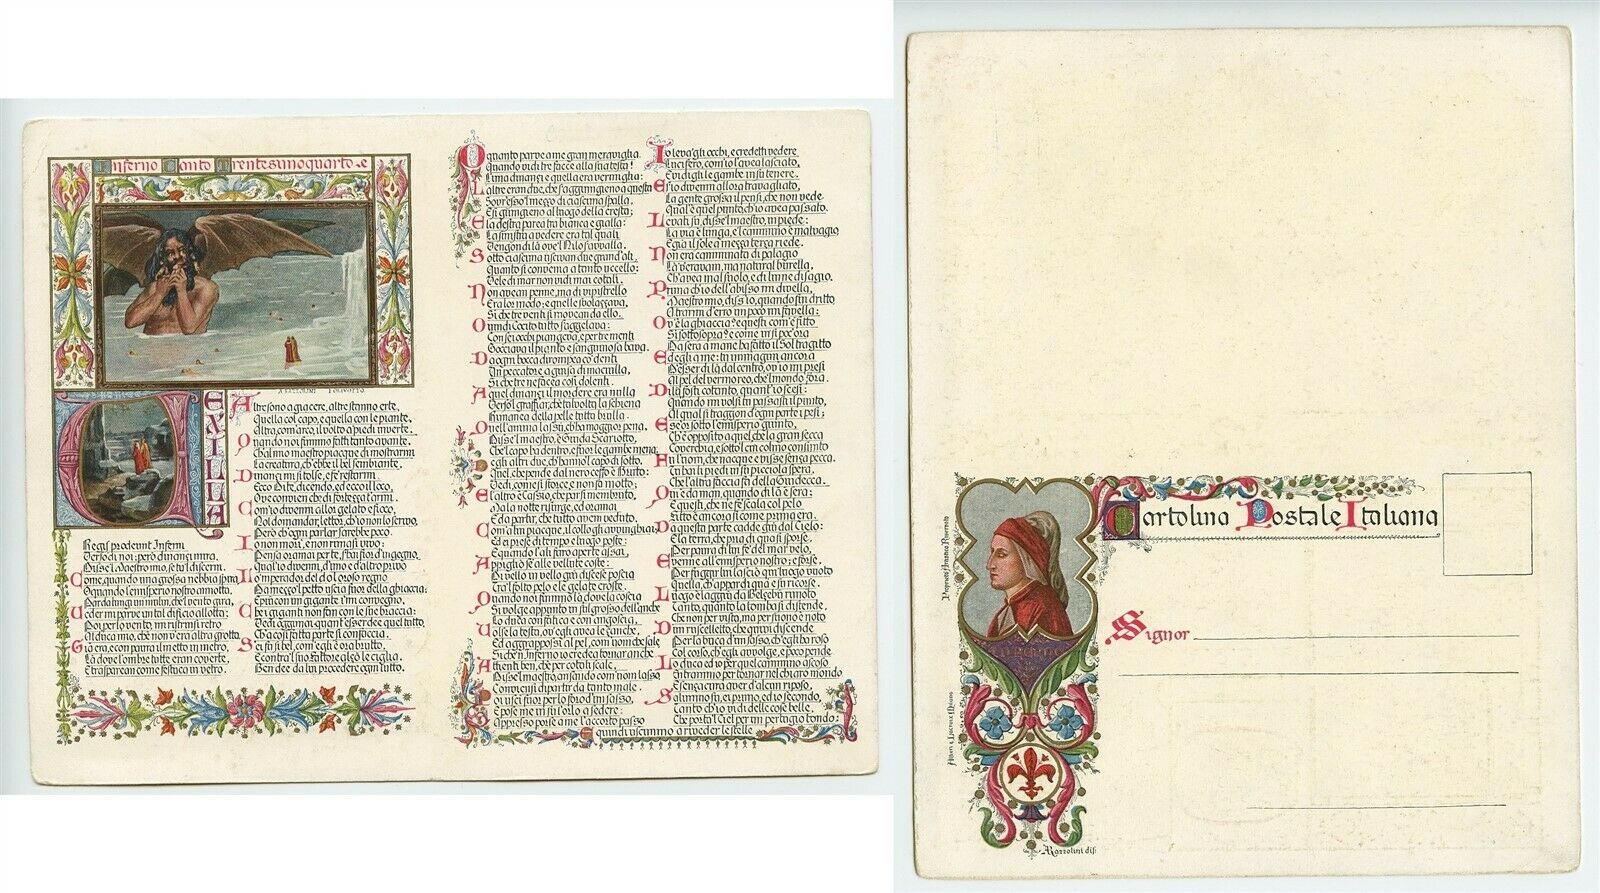 Inferno Canto Trentesimoquarto
VEXILLA
Regis prodeunt Inferni
Verso di noi; però dinanzi mira,
Disse'l Maestro mio, se tu'l discerni.
Come, quando una grossa nebbia spira,
O quando l'emisperio nostro annotta,
Par da lungi un mulin, che'l vento gira,
Veder mi parve un tal dificio allotta:
Poi per lo vento, mi ristrinsi retro
Al duca mio, chè non v'era altra grotta.
Già era, e con paura il metto in metro,
Là dove l'ombre tutte eran coverte,
E trasparean come festuca in vetro.
Altre sono a giacere, altre stanno erte,
Quella col capo, e quella con le piante,
Altra, com'arco, il volto a' piedi inverte.
Quando noi fummo fatti tanto avante,
Ch'al mio maestro piacque di mostrarmi
La creatura, ch'ebbe il bel sembiante,
Dinanzi mi si tolse, e fe' restarmi
Ecco Dite, dicendo, ed ecco il loco,
Ove convien che di fortezza t'armi.
Com'io divenni allor gelato e fioco
Nol domandar, lettor, ch'i'non lo scrivo,
Però ch'ogni parlar sarebbe poco.
Io non morì, e non rimasi vivo:
Pensa oramai per te, s'hai fior d'ingegno,
Qual'io divenni, d'uno e d'altro privo
Lo 'mperador del doloroso regno
Da mezzo'l petto uscia fuor della ghiaccia:
E più con un gigante i'mi convegno,
Che i giganti non fan con le sue braccia:
Vedi oggimai quant'esser dee quel tutto,
Ch'a così fatta parte si confaccia.
S'ei fu sì bel, com'egli è ora brutto,
E contra'l suo Fattore alzò le ciglia,
Ben dee da lui procedere ogni lutto.
O quanto parve a me gran meraviglia,
Quando vidi tre facce alla sua testa!
L'una dinanzi e quella era vermiglia:
L'altre eran due, che s'aggiungieno a questa
Sovr'esso'l mezzo di ciascuna spalla,
E si giungieno al luogo della cresta;
E la destra parea tra bianca e gialla:
La sinistra a vedere era tal quali
Vengon di là ove'l Nilo s'avvalla.
Sotto ciascuna uscivan due grand'ali,
Quanto si conveniva a tanto uccello:
Vele di mar non vid'i mai cotali.
Non avean penne, ma di vipistrello
Era lor modo; e quelle svolazzava,
Sì che tre venti si movean da ello.
Quindi Cocito tutto s'aggelava:
Con sei occhi piangeva, e per tre menti
Gocciava il pianto e sanguinosa bava.
Da ogni bocca dirompea co' denti
Un peccatore, a guisa di maciulla,
Sì che tre ne facea così dolenti.
A quel dinanzi il mordere era nulla
Verso'l graffiar, chè talvolta la schiena
Rimanea della pelle tutta brulla.
Quell'anima lassù, ch'ha maggior pena,
Disse'l maestro, è Giuda Scariotto,
Che'l capo ha dentro, e fuor le gambe mena.
Degli altri due ch'hanno'l capo di sotto,
Quel, che pende dal nero ceffo è Bruto:
Vedi, come si storce, e non fa motto:
E l'altro è Cassio, che par sì membruto,
Ma la notte risurge, ed oramai
E' da partir, chè tutto avem veduto.
Com'a lui piacque, il collo gli avvinghiai;
Ed ei prese di tempo e luogo poste:
E quando l'ali furo aperte assai,
Appigliò sè alle vellute coste:
Di vello in vello giù discese poscia
Tra'l folto pelo e le gelate croste.
Quando noi fummo là, dove la coscia
Si volge appunto in sul grosso dell'anche
Lo duca con fatica e con angoscia,
Volse la testa, ov'egli avea le zanche,
Ed aggrappossi al pel, com'uom che sale
Sì che'n Inferno io credea tornar anche
Attienti ben, chè per cotali scale,
Disse'l Maestro, ansando com'uom lasso
Conviensi dipartir da tanto male.
Poi uscì fuor per lo foro d'un sasso,
E pose me in su l'orlo a sedere:
Appresso porse a me l'accorto passo
Io levai gli occhi, e credetti vedere
Lucifero, com'io l'avea lasciato,
E vidigli le gambe in su tenere.
E s'io divenni allora travagliato,
La gente grossa il pensi, che non vede
Qual'è quel punto, ch'io avea passato.
Levati su, disse'l maestro, in piede:
La via è lunga, e'l cammino è malvagio
E già il sole a mezza terza riede.
Non era camminata di palagio
Là'v'eravam, ma natural burella,
Ch'avea mal suolo, e di lume disagio.
Prima ch'io dell'abisso mi divella,
Maestro mio, diss'io, quando fui dritto
A trarmi d'erro un poco mi favella:
Ov'è la ghiaccia? e questi com'è fitto
Sì sottosopra? e come in sì poc'ora
Da sera a mane ha fatto il Sol tragitto
Ed egli a me: tu immagini ancora
D'esser di là dal centro, ov'io mi presi
Al pel del vermo reo, che'l mondo fora.
Di là fosti cotanto, quant'io scesi:
Quando mi volsi tu passasti il punto,
Al qual si traggon d'ogni parte i pesi:
E se' or sotto l'emisperio giunto,
Ch'è opposito a quel, che la gran secca
Coverchia, e sotto'l cui colmo consunto
Fu l'uom, che nacque e visse senza pecca
Tu hai li piedi in su picciola spera,
Che l'altra faccia fa della Giudecca.
Qui è da man, quando di là è sera:
E questi, che ne fe' scala col pelo
Fitto è ancora sì come prima era.
Da questa parte cadde giù dal Cielo:
E la terra, che pria di qua si sporse,
Per paura di lui fe' del mar velo,
E venne all'emisperio nostro; e forse,
Per fuggir lui lasciò qui'l luogo vuoto
Quella, ch'appar di qua e su ricorse.
Luogo è laggiù da Belzebù rimoto
Tanto, quanto la tomba si distende,
Che non per vista, ma per suono è noto
D'un ruscelletto, che quivi discende
Per la buca d'un sasso, ch'egli ha roso
Col corso, ch'egli avvolge, e poco pende
Lo duca ed io per quel cammino ascoso,
Entrammo per tornar nel chiaro mondo
E senza cura aver d'alcun riposo,
Salimmo su, ei primo, ed io secondo,
Tanto ch'io vidi delle cose belle,
Che porta'l Ciel per un pertugio tondo:
E quindi uscimmo a riveder le stelle
Cartolina Postale Italiana
Signor
Proprietà Artistica Riservata
Alfieri & Lacroix Milano
ARazzolini dis: